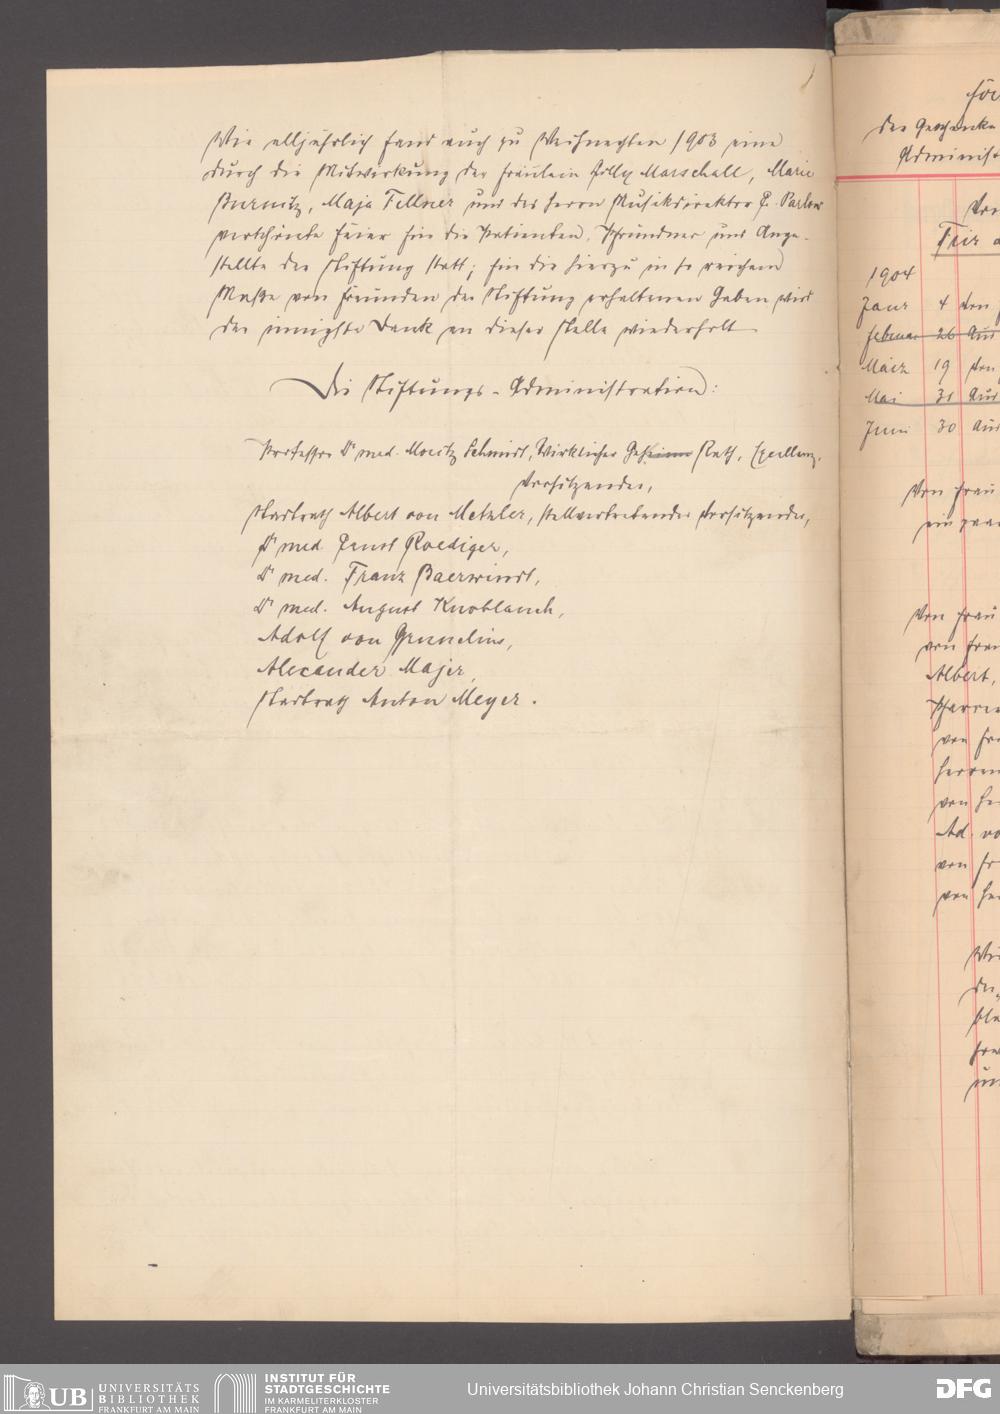 Wie alljährlich fand auch zu Weihnachten 1903 eine
durch die Mitwirkung der Fräulein Marschall, Marie
Burnitz, Maja Fellner und des Herrn Musikdirektor Parlow
verschönte Feier für die Patienten, Pfründner und Ange-
stellte der Stiftung statt; für die hierzu in so reichem
Maße von Freunden der Stiftung erhaltenen Gaben wird
der innigste Dank an dieser Stelle wiederholt
Die Stiftungs-Administration:
Professor Dr med. Moritz Schmidt, Wirklicher Geheimer Rath, Excellenz,
Vorsitzender,
Stadtrath Albert von Metzler, stellvertretender Vorsitzender,
Dr med. Ernst Roediger,
Dr med. Franz Baerwindt,
Dr med. August Knoblauch,
Adolf von Grunelius,
Alexander Majer,
Stadtrath Anton Meyer.
der Geschenke
Administ
Von
1904
Januar 4 Von
Februar 26 Aus
März 19 Von
Mai 31 Aus
Juni 30 Aus
Von Frau
ein paar
Von Frau
von Frau
Albert,
Pfarrer
von Fr
Herren
von He
Ad. vo
von Fr
von He
UB UNIVERSITÄTS
BIBLIOTHEK
FRANKFURT AM MAIN
INSTITUT FÜR
STADTGESCHICHTE
IM KARMELITERKLOSTER
FRANKFURT AM MAIN
Universitätsbibliothek Johann Christian Senckenberg
DFG